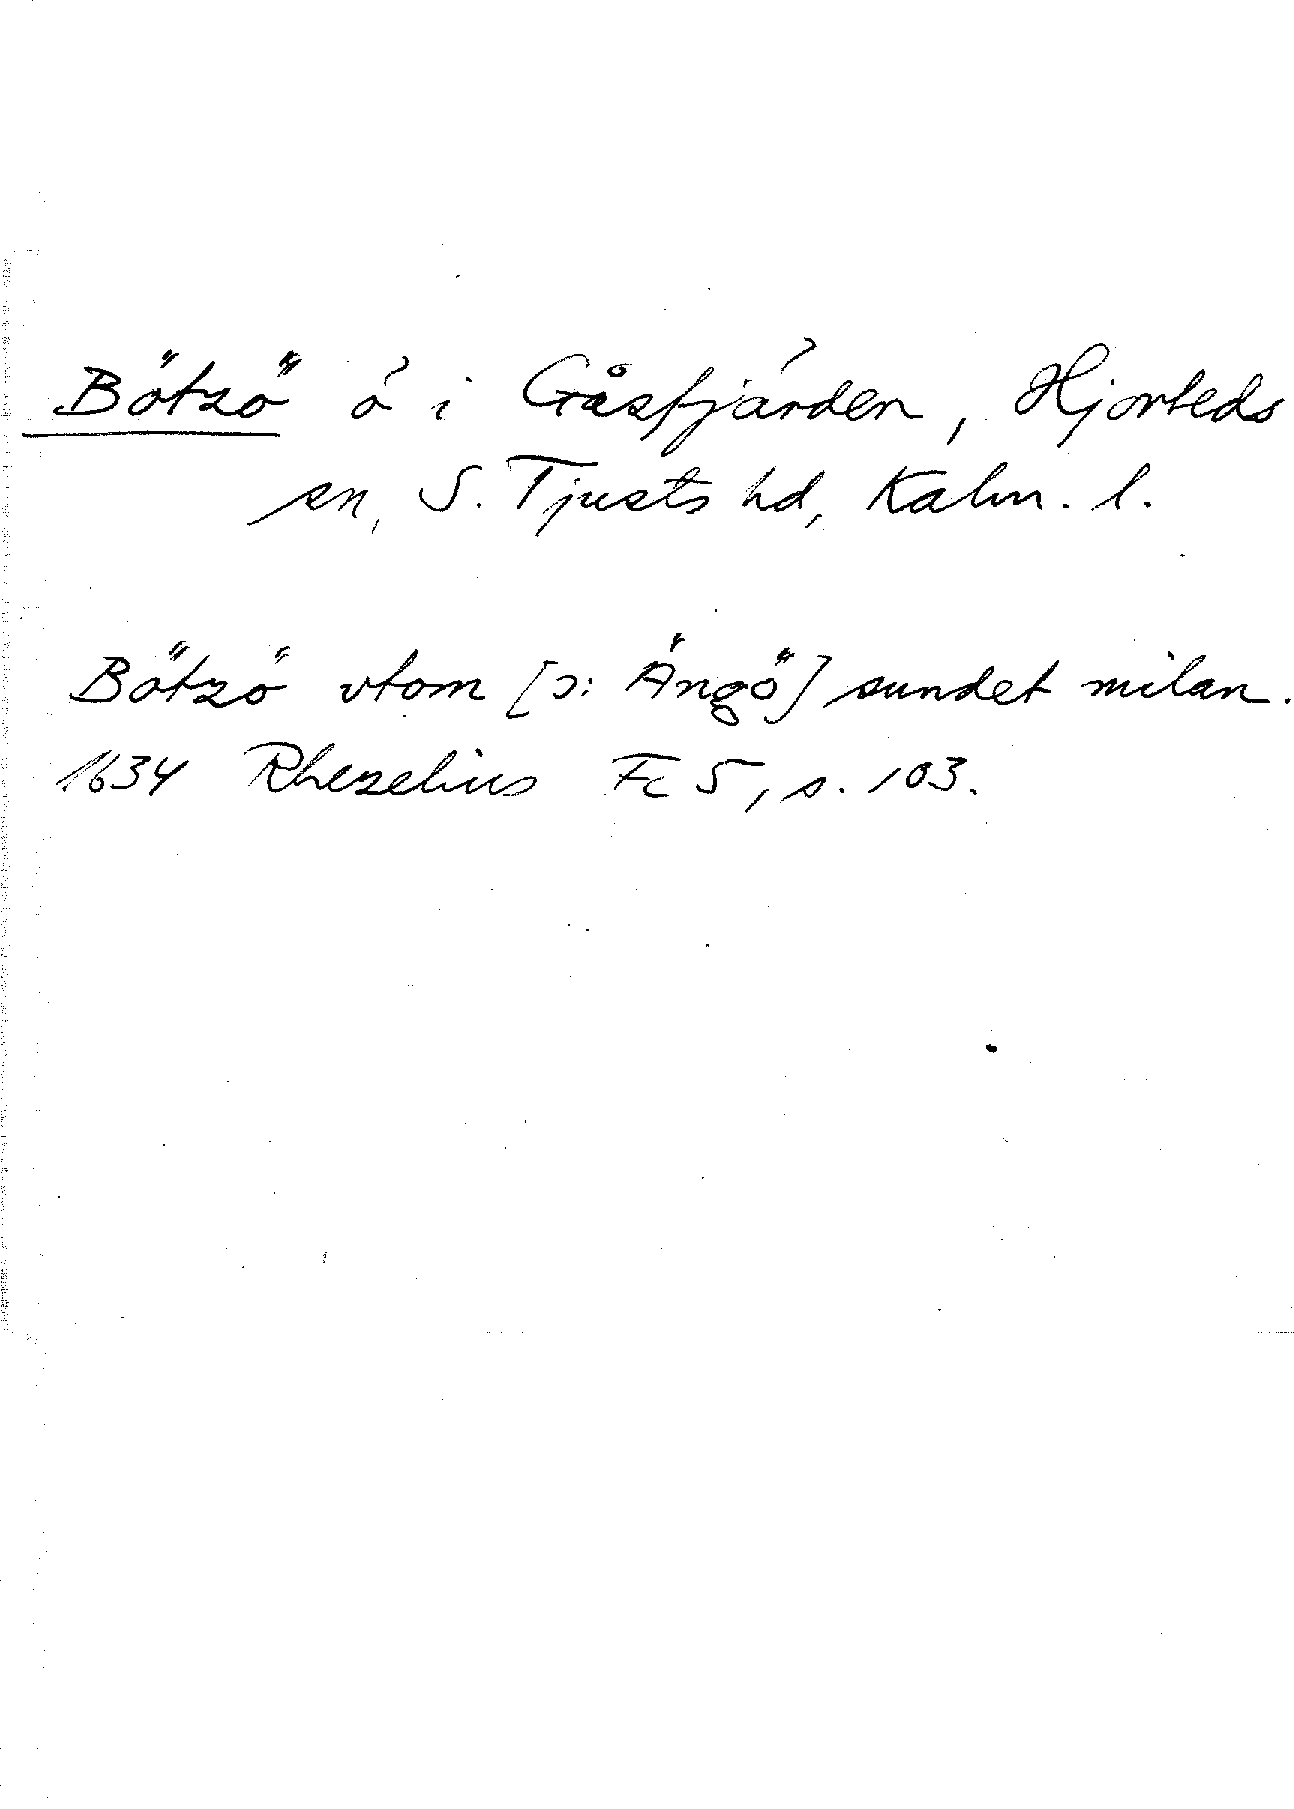 Bötzö ö i Gåsfjärden, Hjorteds
sn, S. Tjusts hd, Kalm. l.
Bötzö vtom [ɔ: Ängö] sundet milan.
1634 Rhezelius Fc 5, s. 103.